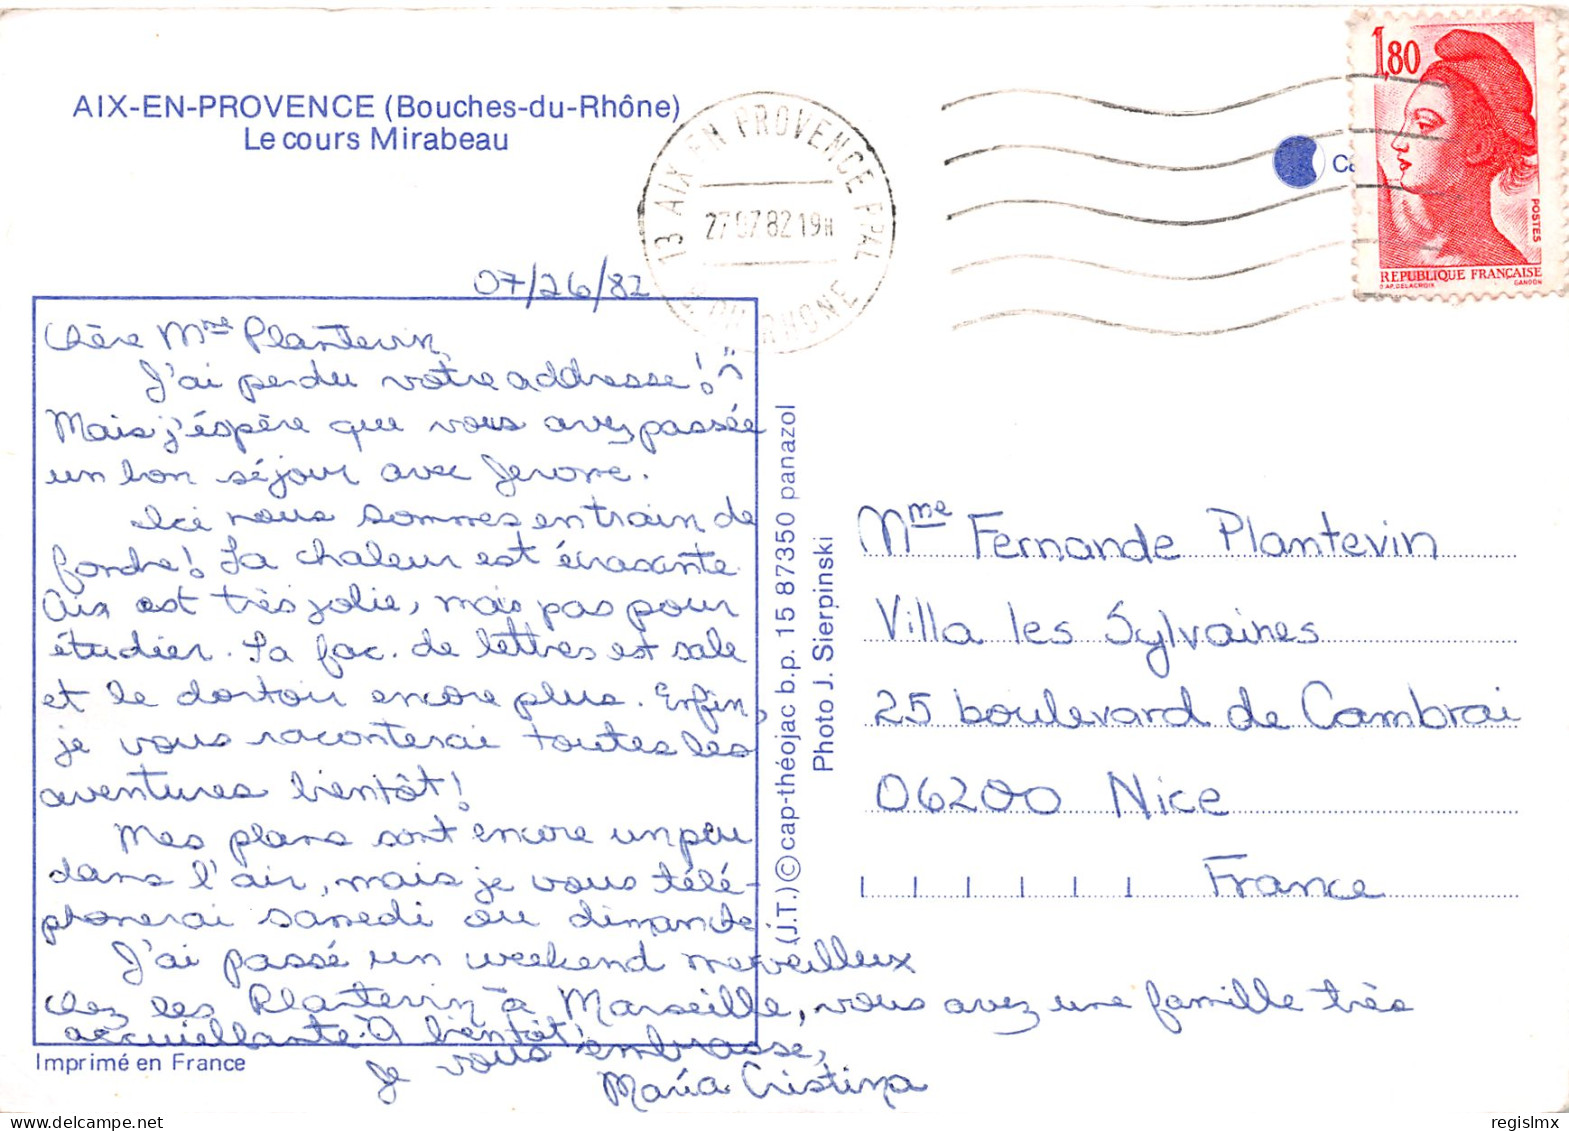 AIX-EN-PROVENCE (Bouches-du-Rhône)
Le cours Mirabeau
13 AIX EN PROVENCE PPAL
27 07 82 19H
DU RHONE
Ca
1,80
POSTES
REPUBLIQUE FRANÇAISE
D'AP. DELACROIX GANDON
07/26/82
Chère Mme Plantevin,
J'ai perdu votre addresse!
Mais j'éspère que vous avez passée
un bon séjour avec Jerome.
Ici nous sommes en train de
fondre! La chaleur est écrasante.
Aix est très jolie, mais pas pour
étudier. La fac. de lettres est sale
et le dortoir encore plus. Enfin,
je vous raconterai toutes les
aventures bientôt!
Mes plans sont encore un peu
dans l'air, mais je vous télé-
phonerai samedi ou dimanche.
J'ai passé un weekend merveilleux
chez les Plantevin à Marseille, vous avez une famille très
accuiellante. A bientôt!
Je vous embrasse,
María Cristina
Imprimé en France
(J.T.) © cap-théojac b.p. 15 87350 panazol
Photo J. Sierpinski
Mme Fernande Plantevin
Villa les Sylvaines
25 boulevard de Cambrai
06200 Nice
France
regislmx